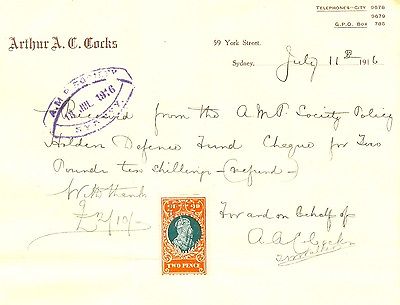 TELEPHONES-CITY 9678
9679
G.P.O. BOX 786
Arthur A. C. Cocks
59 York Street,
Sydney, July 11th 1916
A.M.P. SOCIETY
JUL. 1916
SYDNEY
Received from the A.M.P. Society Policy
Holders Defence Fund Cheque for Two
Pounds ten shillings (refund)
With thanks
£2/10/-
For and on behalf of
A A C Cocks
TWO PENCE